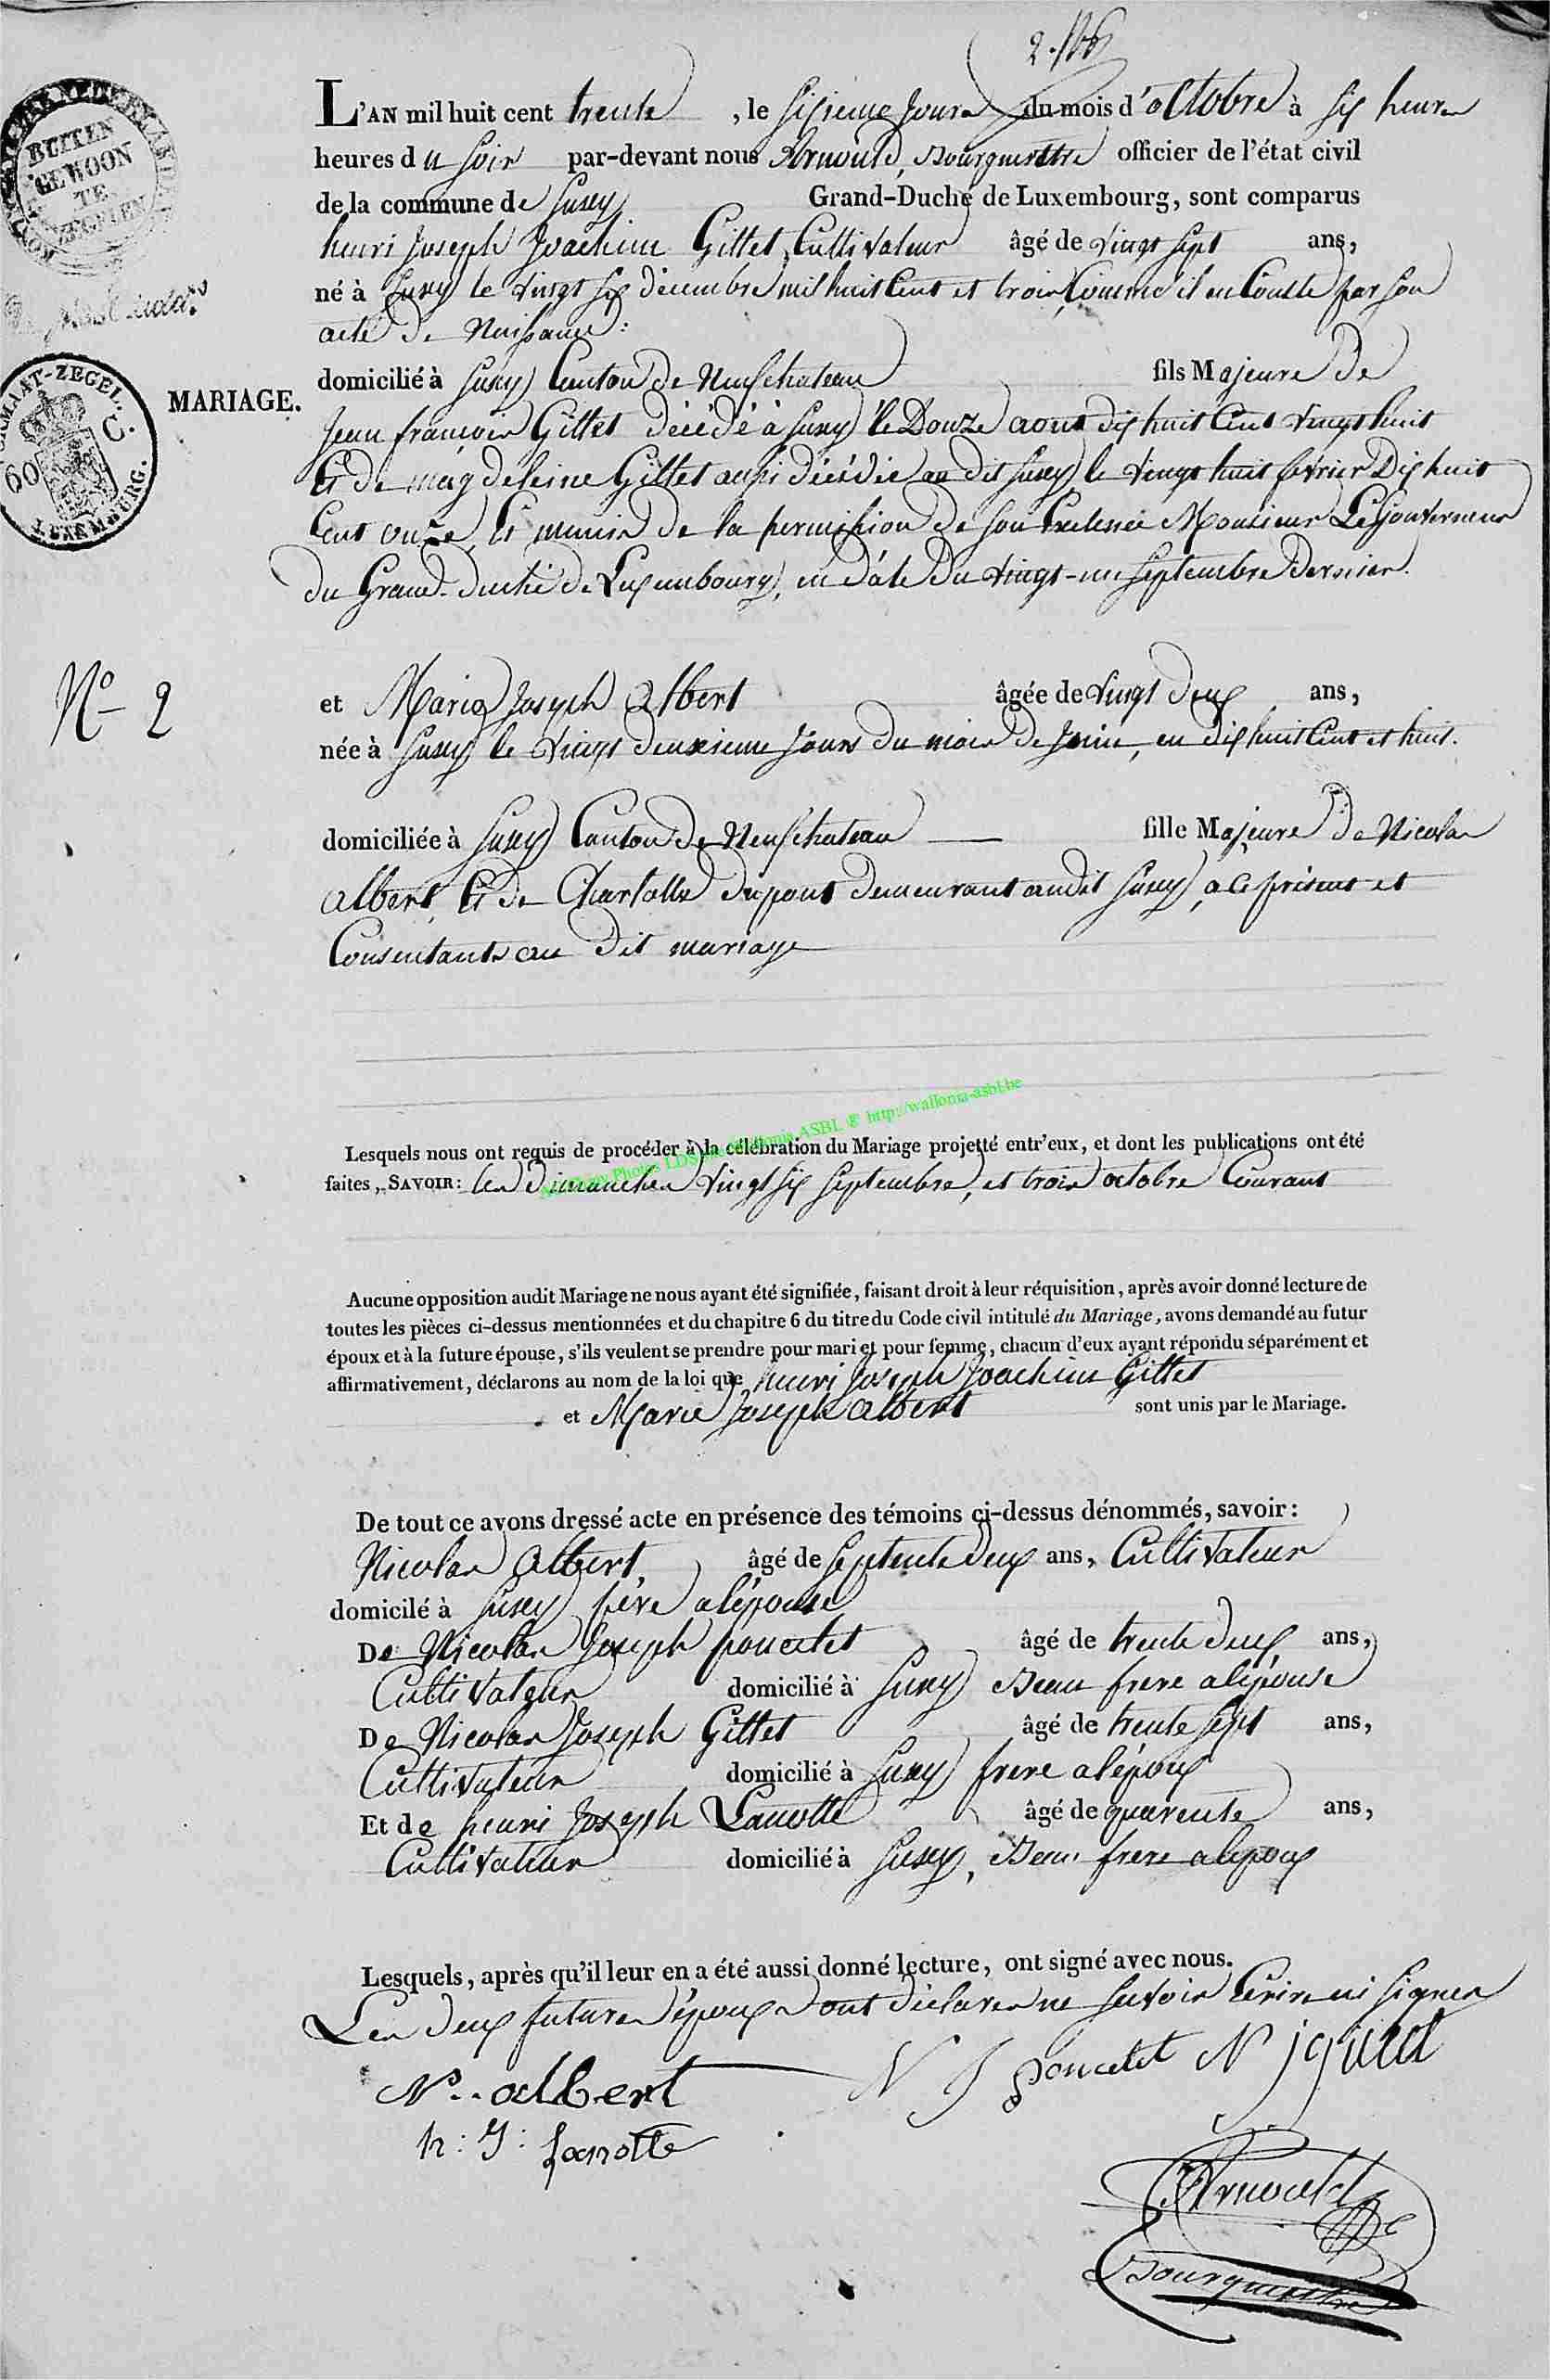 2.
L'AN mil huit cent trente, le sixieme Jours du mois d'octobre à six heures
heures du soir par-devant nous Arnould, Bourguesttre officier de l'état civil
de la commune de Suxy Grand-Duché de Luxembourg, sont comparus
henri Joseph Joachim Gillet, Cultivateur âgé de vingt sept ans,
né à Suxy le vingt six décembre mil huit Cent et trois Comme il en Conste par son
acte de Naissance:
domicilié à Suxy Canton de Neufchateau fils Majeure De
Jean françois Gillet décédé à Suxy le Douze aout dix huit Cent vingt huit
Et de magdeleine Gillet aussi décédée au dit Suxy le vingt huit février Dix huit
Cent onze, Et munis de la permission de son Excelence Monsieur Le Gouverneur
du Grand-duché de Luxembourg, en date du vingt-un septembre Dernier.
BUITEN
GEWOON
TE
ZEGELEN
FORMAAT-ZEGEL.
60 C.
LUXEMBURG.
MARIAGE.
No 2
et Marie Joseph Albert âgée de vingt deux ans,
née à Suxy le vingt deuxieme Jours du mois de Juin, en dix huit Cent et huit.
domiciliée à Suxy Canton de Neufchateau — fille Majeure De Nicolas
albert, Et de Charlotte dupont demeurant audit Suxy, a ce présent et
Consentants au dit mariage
http://wallonia-asbl.be
Lesquels nous ont requis de procéder à la célébration du Mariage projetté entr'eux, et dont les publications ont été
faites, SAVOIR: les Dimanches vingt six septembre, et trois octobre Courant
Aucune opposition audit Mariage ne nous ayant été signifiée, faisant droit à leur réquisition, après avoir donné lecture de
toutes les pièces ci-dessus mentionnées et du chapitre 6 du titre du Code civil intitulé du Mariage, avons demandé au futur
époux et à la future épouse, s'ils veulent se prendre pour mari et pour femme, chacun d'eux ayant répondu séparément et
affirmativement, déclarons au nom de la loi que henri Joseph Joachim Gillet
et Marie Joseph albert sont unis par le Mariage.
De tout ce avons dressé acte en présence des témoins ci-dessus dénommés, savoir:
Nicolas albert, âgé de septente deux ans, Cultivateur
domicilé à Suxy père a lépouse
De Nicolas Joseph poncelet âgé de trente deux ans,
Cultivateur domicilié à Suxy Beau frere a lépouse
De Nicolas Joseph Gillet âgé de trente sept ans,
Cultivateur domicilié à Suxy frere a lépoux
Et de henri Joseph Lanotte âgé de quarente ans,
Cultivateur domicilié à Suxy, Beau frere a lepoux
Lesquels, après qu'il leur en a été aussi donné lecture, ont signé avec nous.
Les deux futures époux ont déclares ne savoir Ecrire ni signer
N.. albert N J poncelet N j gillet
h: J: Lanotte
Arnould
Bourguesttre